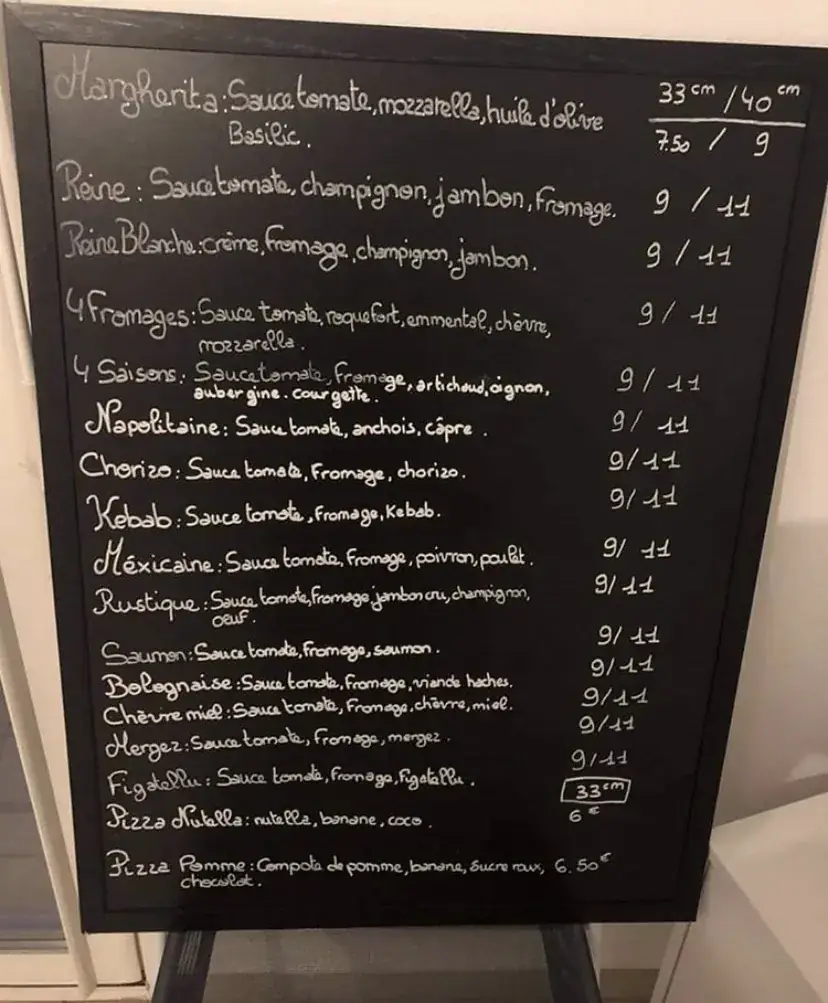 Margherita: Sauce tomate, mozzarella, huile d'olive 33cm / 40cm
Basilic. 7.50 / 9
Reine: Sauce tomate, champignon, jambon, fromage. 9 / 11
Reine Blanche: crème, fromage, champignon, jambon. 9 / 11
4 Fromages: Sauce tomate, roquefort, emmental, chèvre, 9 / 11
mozzarella.
4 Saisons: Sauce tomate, fromage, artichaud, oignon, 9 / 11
aubergine. courgette.
Napolitaine: Sauce tomate, anchois, câpre. 9 / 11
Chorizo: Sauce tomate, Fromage, chorizo. 9/11
Kebab: Sauce tomate, fromage, Kebab. 9/11
Méxicaine: Sauce tomate, fromage, poivron, poulet. 9/ 11
Rustique: Sauce tomate, fromage, jambon cru, champignon, 9/11
oeuf.
Saumon: Sauce tomate, fromage, saumon. 9/ 11
Bolognaise: Sauce tomate, fromage, viande haches. 9/11
Chèvre miel: Sauce tomate, Fromage, chèvre, miel. 9/11
Mergez: Sauce tomate, fromage, mergez. 9/11
Figatellu: Sauce tomate, fromage, figatellu. 9/11
33cm
Pizza Nutella: nutella, banane, coco. 6€
Pizza Pomme: Compote de pomme, banane, sucre roux, 6.50€
chocolat.